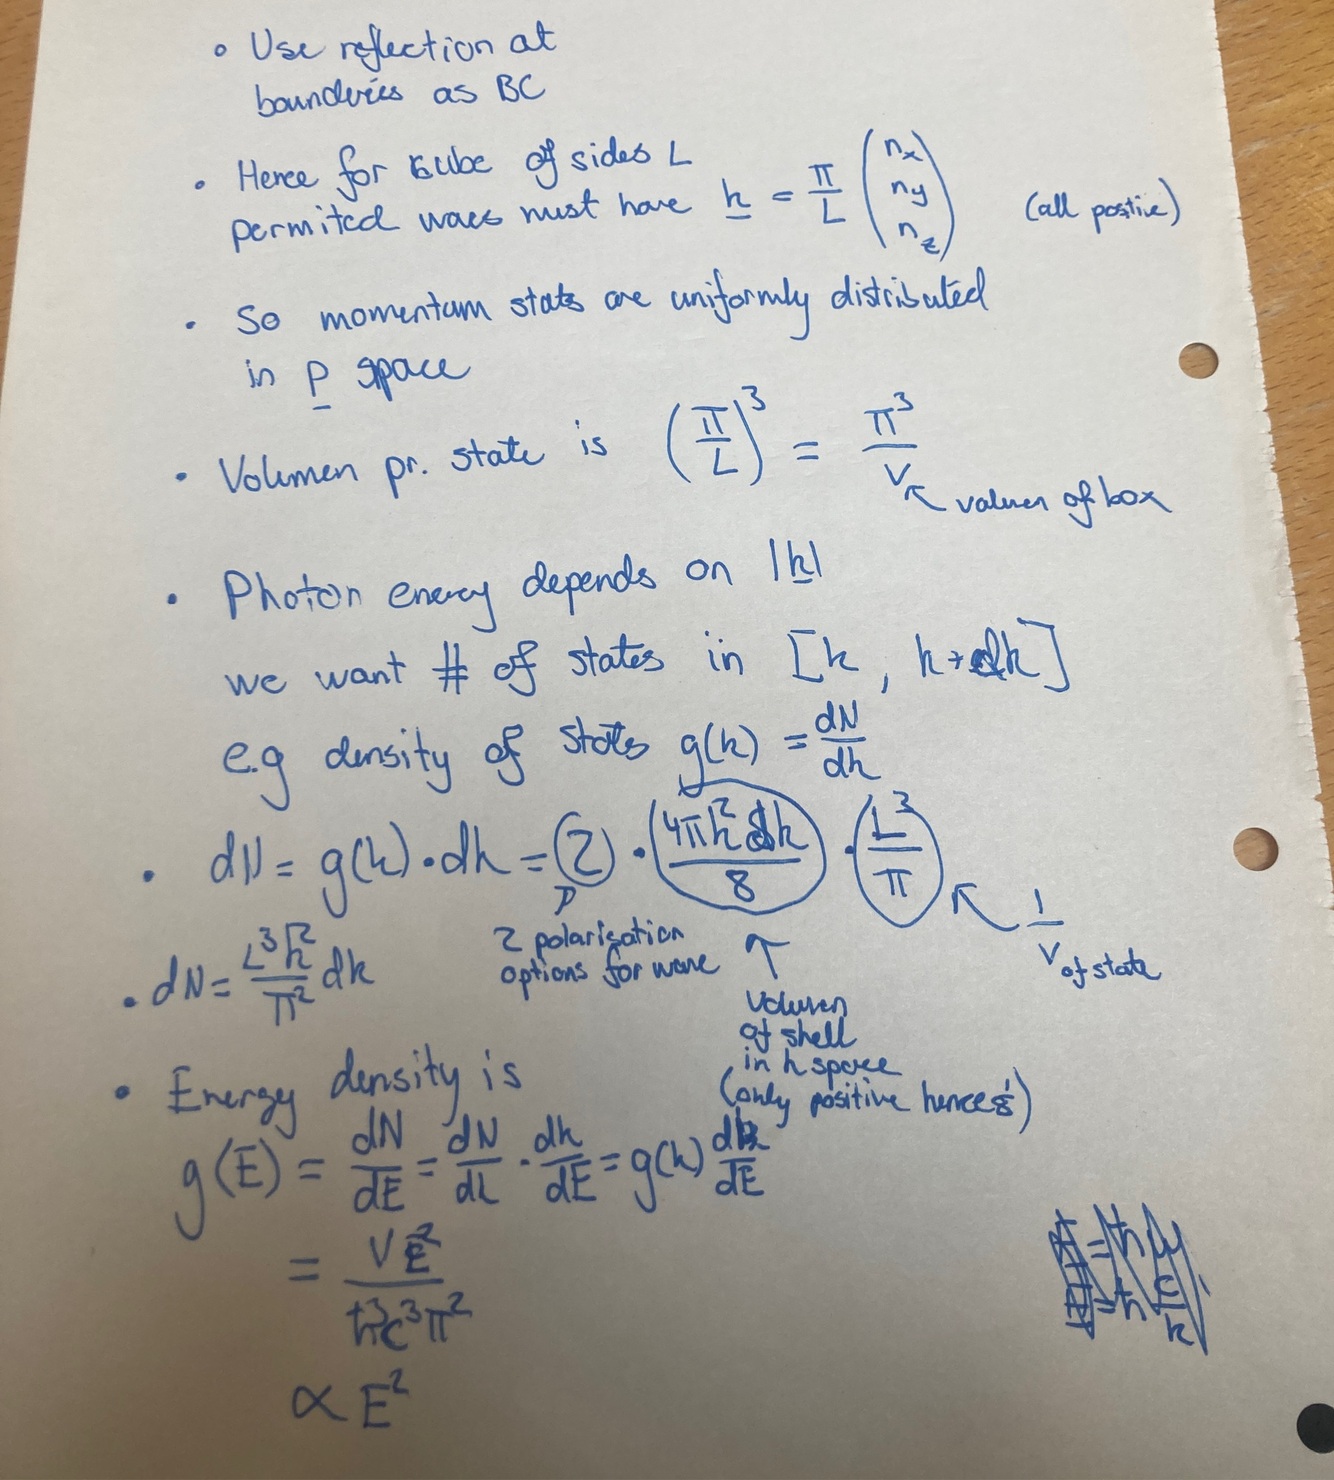 ∘ Use reflection at
bounderies as BC
• Hence for cube of sides L
permited waes must have k = π/L (nx ny nz) (all postive)
• So momentum stats are uniformly distributed
in p space
• Volumen pr. state is (π/L)³ = π³/V
↖ valumen of box
• Photon energy depends on |k|
we want # of states in [k, k+dk]
e.g density of states g(k) = dN/dk
• dN = g(k)·dk = 2 · (4πk²dk/8) · (L³/π)
↖ 1/V of state
2 polarisation
options for wave
• dN = L³k²/π² dk
Volumen
of shell
in k space
(only positive hence 8)
• Energy density is
g(E) = dN/dE = dN/dk · dk/dE = g(k) dk/dE
= VE²/ħ³c³π²
∝ E²